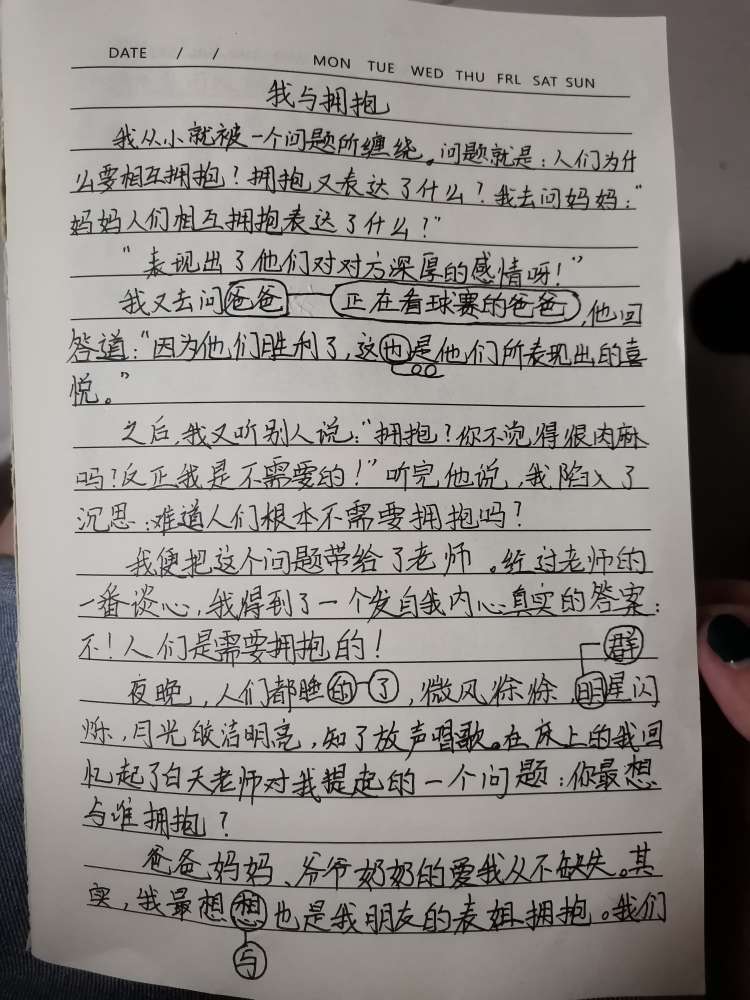 DATE / /
MON TUE WED THU FRI SAT SUN
我与拥抱
我从小就被一个问题所缠绕。问题就是：人们为什
么要相互拥抱？拥抱又表达了什么？我去问妈妈：“
妈妈人们相互拥抱表达了什么？”
“表现出了他们对对方深厚的感情呀！”
我又去问爸爸 正在看球赛的爸爸，他回
答道：“因为他们胜利了，这也是他们所表现出的喜
悦。”
之后，我又听别人说：“拥抱？你不觉得很肉麻
吗？反正我是不需要的！”听完他说，我陷入了
沉思：难道人们根本不需要拥抱吗？
我便把这个问题带给了老师。经过老师的
一番谈心，我得到了一个发自我内心真实的答案：
不！人们是需要拥抱的！
群
夜晚，人们都睡的了，微风徐徐，明星闪
烁，月光皎洁明亮，知了放声唱歌。在床上的我回
忆起了白天老师对我提起的一个问题：你最想
与谁拥抱？
爸爸、妈妈、爷爷奶奶的爱我从不缺失。其
实，我最想想也是我朋友的表姐拥抱。我们
与